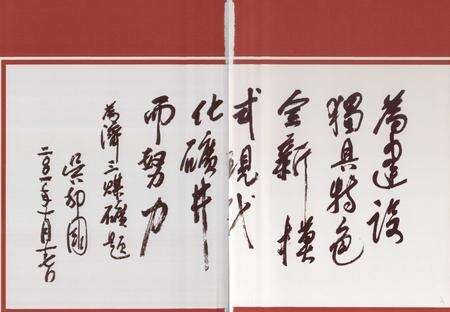 為建設
獨具特色
全新模
式現代
化礦井
而努力
為濟三煤礦題
吴邦國
二〇〇一年一月十七日